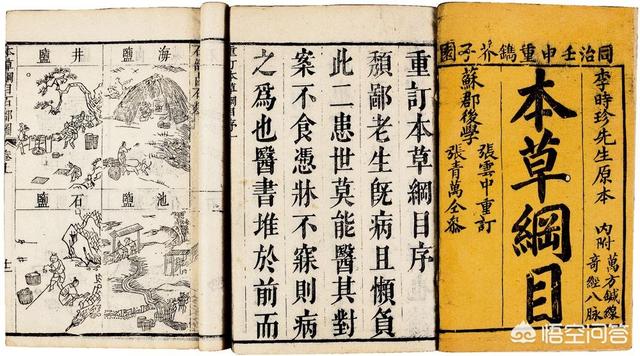 同治壬申重鐫芥子園
李時珍先生原本
內附
萬方鍼線
奇經八脉
本草綱目
蘇郡後學
張雲中重訂
張青萬仝參
重訂本草綱目序
頹鄙老生旣病且懶負
此二患世莫能醫其對
案不食憑牀不寐則病
之爲也醫書堆於前而
重訂本草綱目序
海鹽
井鹽
池鹽
石鹽
本草綱目石部圖
悟空问答